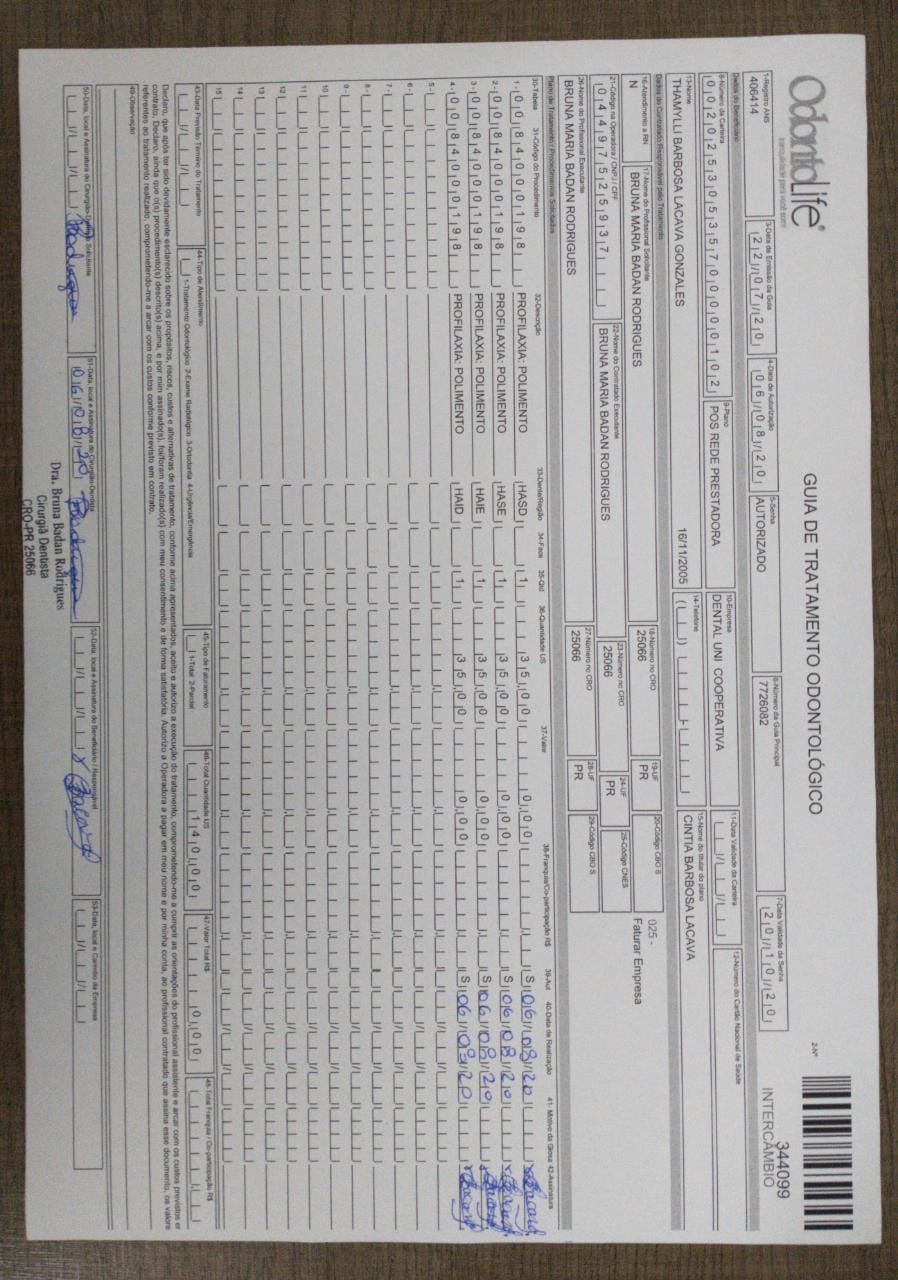 OdontoLife®
tranquilidade para você sorrir
GUIA DE TRATAMENTO ODONTOLÓGICO
2-Nº
344099
INTERCÂMBIO
1-Registro ANS
406414
3-Data de Emissão da Guia
22/07/20
4-Data de Autorização
06/08/20
5-Senha
AUTORIZADO
6-Número da Guia Principal
7726082
7-Data Validade da Senha
20/10/20
Dados do Beneficiário
8-Número da Carteira
00202530535700000102
9-Plano
POS REDE PRESTADORA
10-Empresa
DENTAL UNI COOPERATIVA
11-Data Validade da Carteira
12-Número do Cartão Nacional de Saúde
13-Nome
THAMYLLI BARBOSA LACAVA GONZALES
16/11/2005
14-Telefone
15-Nome do titular do plano
CINTIA BARBOSA LACAVA
Dados do Contratado Responsável pelo Tratamento
16-Atendimento a RN
N
17-Nome do Profissional Solicitante
BRUNA MARIA BADAN RODRIGUES
18-Número no CRO
25066
19-UF
PR
20-Código CBO S
025 -
Faturar Empresa
21-Código na Operadora / CNPJ / CPF
04497525937
22-Nome do Contratado Executante
BRUNA MARIA BADAN RODRIGUES
23-Número no CRO
25066
24-UF
PR
25-Código CNES
26-Nome do Profissional Executante
BRUNA MARIA BADAN RODRIGUES
27-Número no CRO
25066
28-UF
PR
29-Código CBO S
Plano de Tratamento / Procedimentos Solicitados
30-Tabela 31-Código do Procedimento 32-Descrição 33-Dente/Região 34-Face 35-Qtd 36-Quantidade US 37-Valor 38-Franquia/Co-participação R$ 39-Aut 40-Data de Realização 41- Motivo da Glosa 42-Assinatura
1- 00 84000198 PROFILAXIA: POLIMENTO HASD 1 35,00 0,00 S 06/08/20
2- 00 84000198 PROFILAXIA: POLIMENTO HASE 1 35,00 0,00 S 06/08/20
3- 00 84000198 PROFILAXIA: POLIMENTO HAIE 1 35,00 0,00 S 06/08/20
4- 00 84000198 PROFILAXIA: POLIMENTO HAID 1 35,00 0,00 S 06/08/20
5-
6-
7-
8-
9-
10-
11-
12-
13-
14
15
43-Data Previsão Término do Tratamento
44-Tipo de Atendimento
1-Tratamento Odontológico 2-Exame Radiológico 3-Ortodontia 4-Urgência/Emergência
45-Tipo de Faturamento
1-Total 2-Parcial
46-Total Quantidade US
140,00
47-Valor Total R$
0,00
48-Total Franquia / Co-participação R$
Declaro, que após ter sido devidamente esclarecido sobre os propósitos, riscos, custos e alternativas de tratamento, conforme acima apresentados, aceito e autorizo a execução do tratamento, comprometendo-me a cumprir as orientações do profissional assistente e arcar com os custos previstos em
contrato. Declaro, ainda que o(s) procedimento(s) descrito(s) acima, e por mim assinado(s), foi/foram realizado(s) com meu consentimento e de forma satisfatória. Autorizo a Operadora a pagar em meu nome e por minha conta, ao profissional contratado que assina esse documento, os valore
referentes ao tratamento realizado, comprometendo-me a arcar com os custos conforme previsto em contrato.
49-Observação
50-Data, local e Assinatura do Cirurgião-Dentista Solicitante
51-Data, local e Assinatura do Cirurgião-Dentista
06/08/20
52-Data, local e Assinatura do Beneficiário / Responsável
53-Data, local e Carimbo da Empresa
Dra. Bruna Badan Rodrigues
Cirurgiã Dentista
CRO-PR 25066